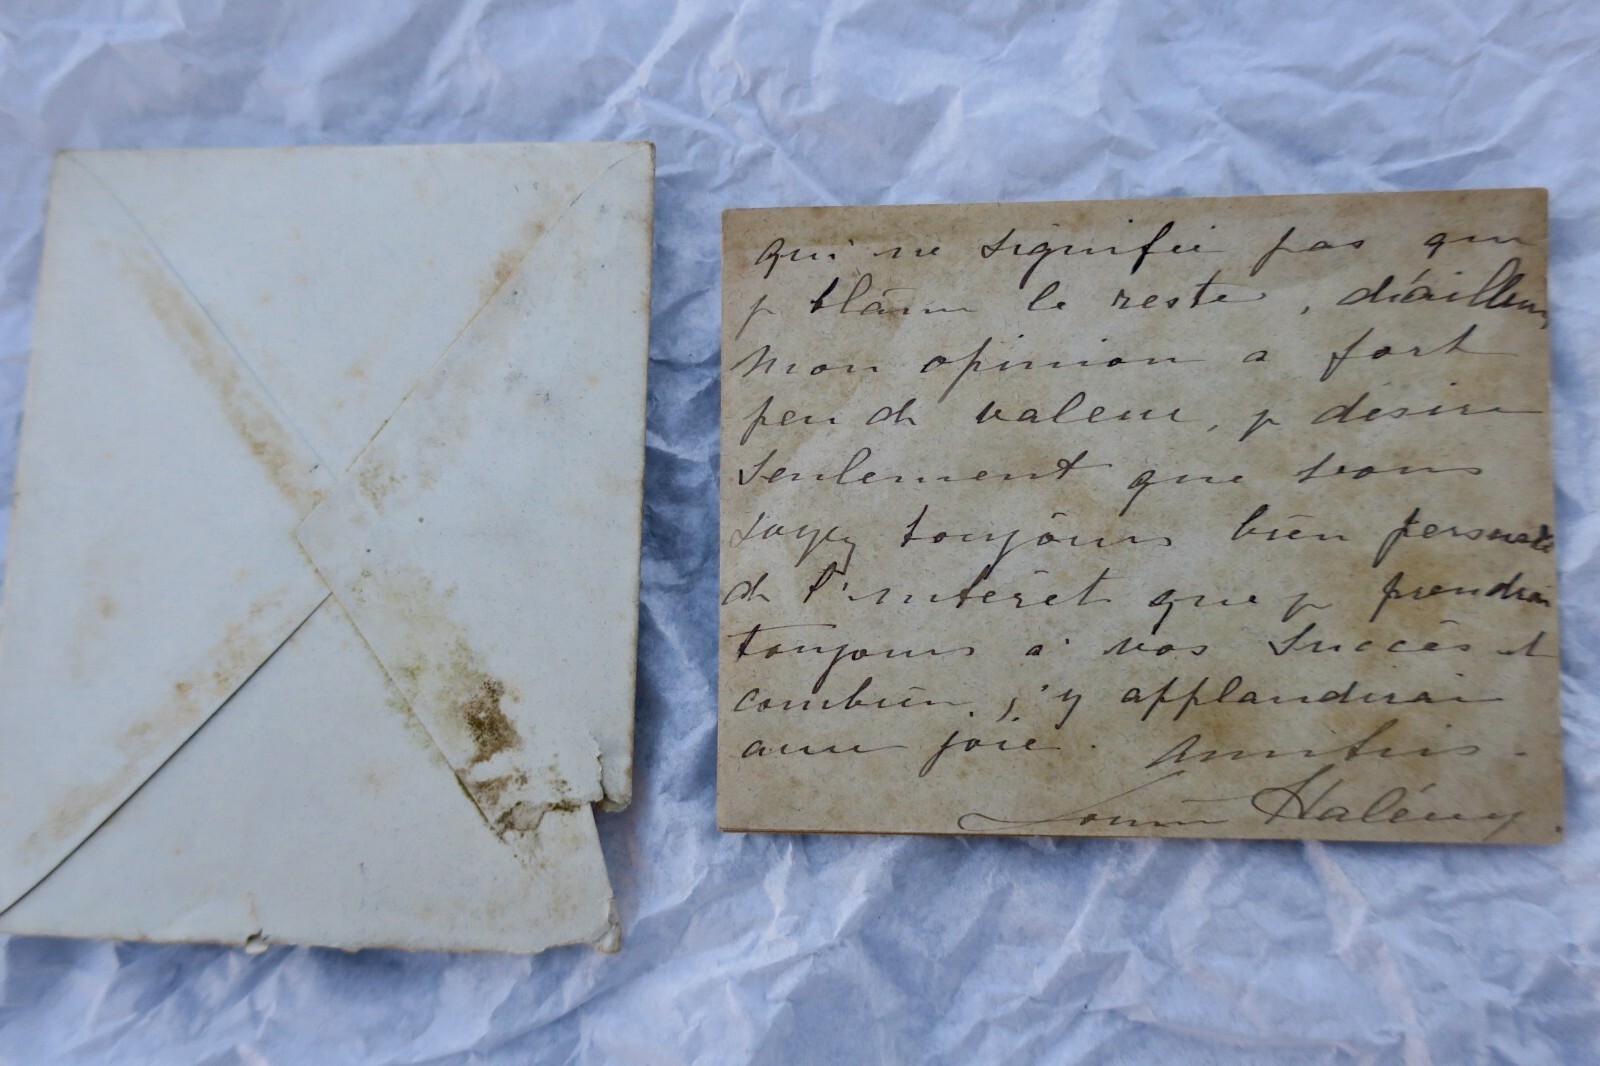 qui ne signifie pas que
je blâme le reste, d'ailleurs
mon opinion a fort
peu de valeur, je désire
seulement que vous
soyez toujours bien persuadé
de l'intérêt que je prendrai
toujours à vos succès et
combien j'y applaudirai
avec joie. Amitiés.
Louise Halévy.